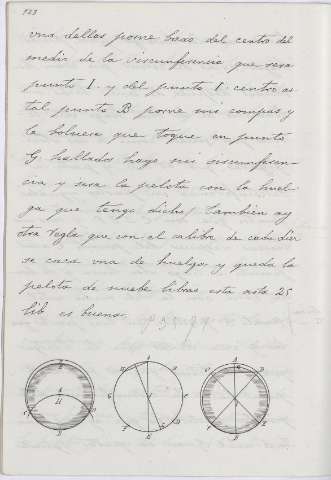 una dellas porne baxo del centro del
medir de la circunferencia que sera
punto I. y del punto I. centro as
tal punto B porne mi compas y
la bolvere que toque en punto
G hallados hago mi circunferen-
cia y sera la pelota con la huel-
ga que tengo dicho / tambien ay
otra regla que con el calibre de cada diez
se saca una de huelga y queda la
pelota de nuebe libras esta asta 25
lib es buena.